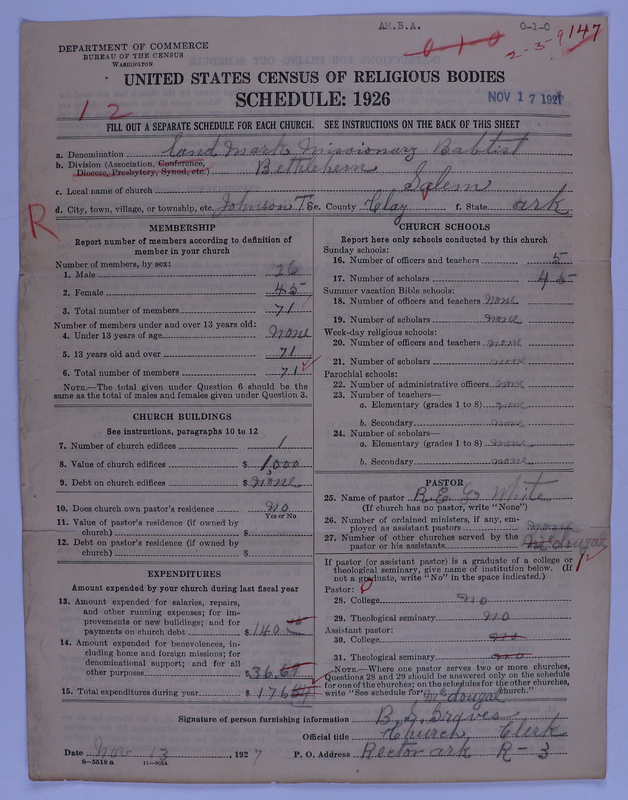 AM.B.A. 0-1-0
0 1 0 2-35 9 147
DEPARTMENT OF COMMERCE
BUREAU OF THE CENSUS
WASHINGTON
UNITED STATES CENSUS OF RELIGIOUS BODIES
SCHEDULE: 1926
NOV 17 1927
1 2
FILL OUT A SEPARATE SCHEDULE FOR EACH CHURCH. SEE INSTRUCTIONS ON THE BACK OF THIS SHEET
a. Denomination Land Mark Missionary Babtist
b. Division (Association, Conference, Diocese, Presbytery, Synod, etc.) Bethlehem
c. Local name of church Salem
R
d. City, town, village, or township, etc. Johnson T.S e. County Clay f. State ark
MEMBERSHIP
Report number of members according to definition of
member in your church
Number of members, by sex:
1. Male 26
2. Female 45
3. Total number of members 71
Number of members under and over 13 years old:
4. Under 13 years of age none
5. 13 years old and over 71
6. Total number of members 71
NOTE.—The total given under Question 6 should be the
same as the total of males and females given under Question 3.
CHURCH BUILDINGS
See instructions, paragraphs 10 to 12
7. Number of church edifices 1
8. Value of church edifices $ 1,000
9. Debt on church edifices $ none
10. Does church own pastor's residence no
Yes or No
11. Value of pastor's residence (if owned by
church) $
12. Debt on pastor's residence (if owned by
church) $
EXPENDITURES
Amount expended by your church during last fiscal year
13. Amount expended for salaries, repairs,
and other running expenses; for im-
provements or new buildings; and for
payments on church debt $ 140
14. Amount expended for benevolences, in-
cluding home and foreign missions; for
denominational support; and for all
other purposes $ 36.
15. Total expenditures during year $ 176
CHURCH SCHOOLS
Report here only schools conducted by this church
Sunday schools:
16. Number of officers and teachers 5
17. Number of scholars 45
Summer vacation Bible schools:
18. Number of officers and teachers none
19. Number of scholars none
Week-day religious schools:
20. Number of officers and teachers none
21. Number of scholars none
Parochial schools:
22. Number of administrative officers none
23. Number of teachers—
a. Elementary (grades 1 to 8) none
b. Secondary none
24. Number of scholars—
a. Elementary (grades 1 to 8) none
b. Secondary none
PASTOR
25. Name of pastor R.E. G. White
(If church has no pastor, write "None")
26. Number of ordained ministers, if any, em-
ployed as assistant pastors none
27. Number of other churches served by the
pastor or his assistants McDougal
If pastor (or assistant pastor) is a graduate of a college or
theological seminary, give name of institution below. (If
not a graduate, write "No" in the space indicated.)
Pastor:
28. College no
29. Theological seminary no
Assistant pastor:
30. College no
31. Theological seminary no
NOTE.—Where one pastor serves two or more churches,
Questions 28 and 29 should be answered only on the schedule
for one of the churches; on the schedules for the other churches,
write "See schedule for McDougal church."
Signature of person furnishing information B. F. Graves
Official title Church Clerk
Date Nov 13, 1927 P. O. Address Rector ark R-3
8-5518 a 11-9054